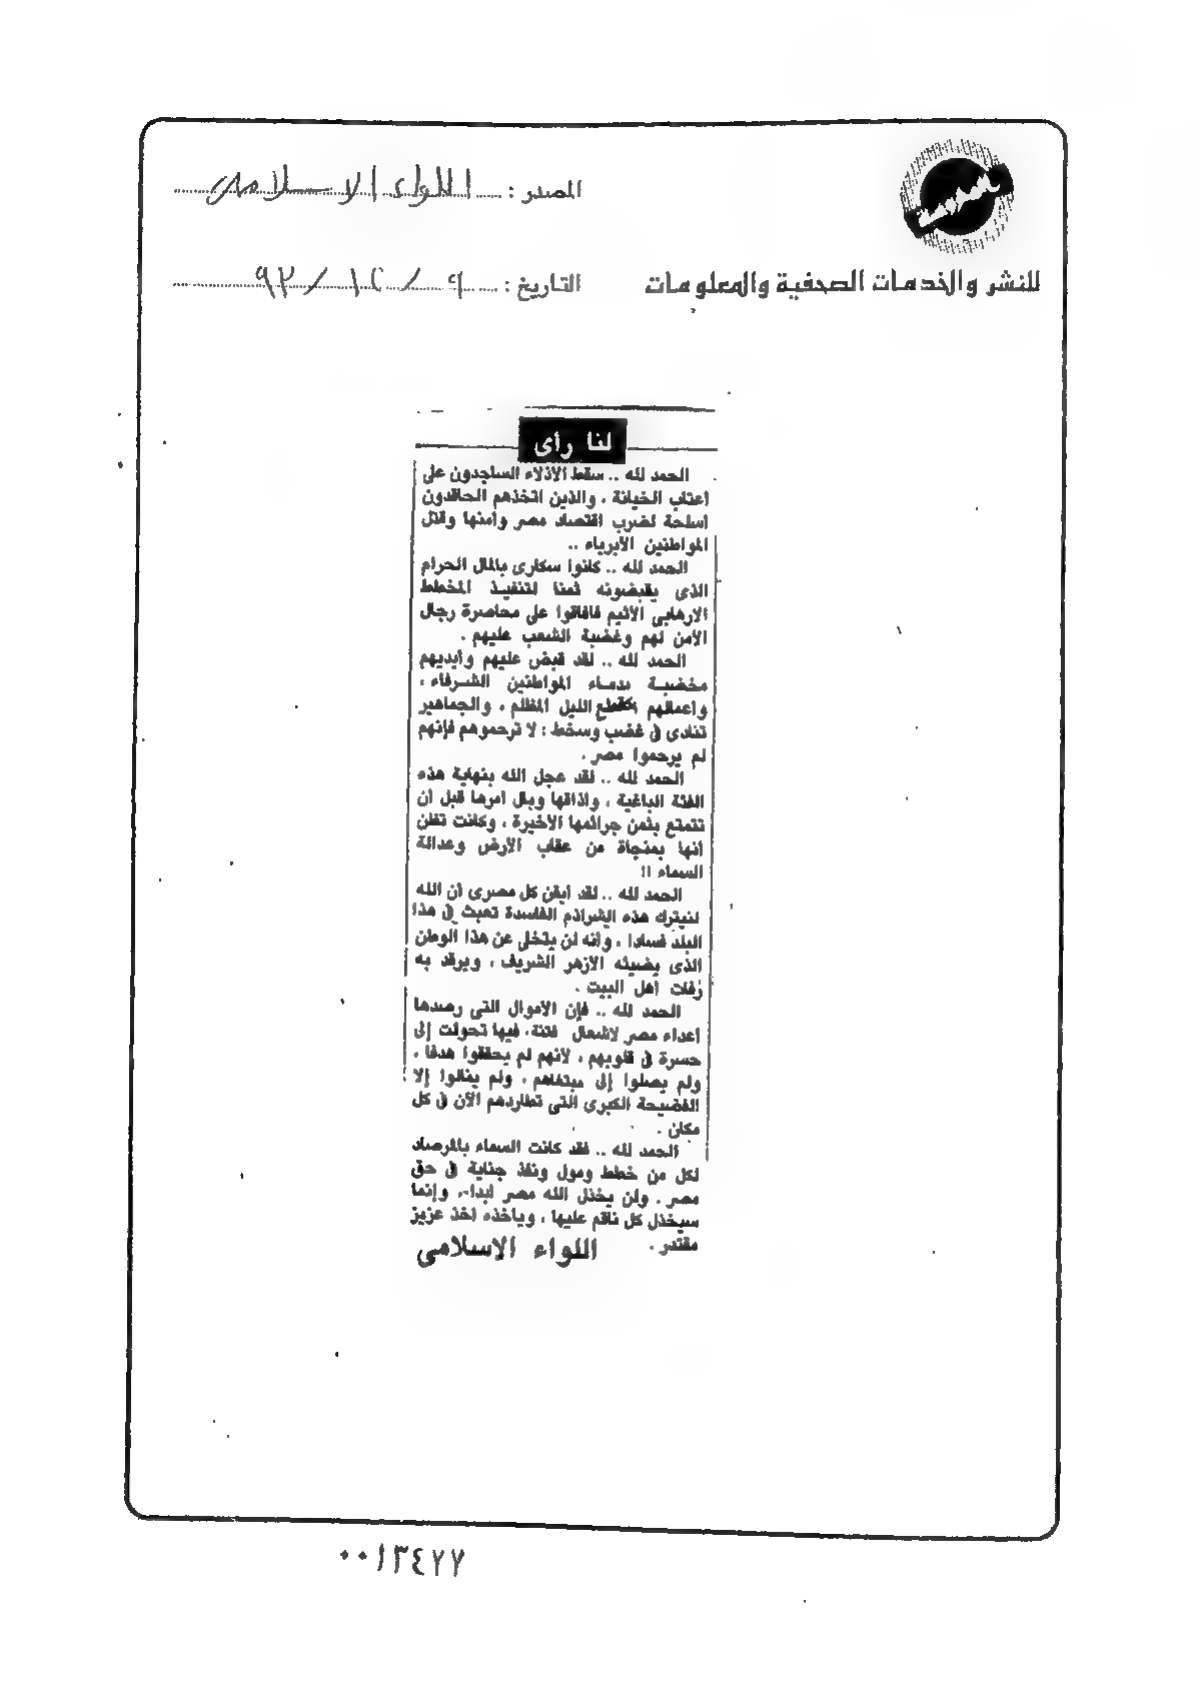 المصدر : اللواء الاسلامى
للنشر والخدمات الصحفية والمعلومات
التاريخ : ٩ / ١٢ / ٩٣
لنا رأى
الحمد لله .. سقط الأذلاء الساجدون على
أعتاب الخيانة ، والذين اتخذهم الحاقدون
أسلحة لضرب اقتصاد مصر وأمنها وقتل
المواطنين الأبرياء ..
الحمد لله .. كانوا سكارى بالمال الحرام
الذى يقبضونه ثمنا لتنفيذ المخطط
الارهابى الأثيم فافاقوا على محاصرة رجال
الأمن لهم وغضبة الشعب عليهم .
الحمد لله .. لقد قبض عليهم وأيديهم
مخضبة بدماء المواطنين الشرفاء ،
وأعمالهم كقطع الليل المظلم ، والجماهير
تنادى فى غضب وسخط : لا ترحموهم فإنهم
لم يرحموا مصر .
الحمد لله .. لقد عجل الله بنهاية هذه
الفئة الباغية ، وأذاقها وبال أمرها قبل أن
تتمتع بثمن جرائمها الأخيرة ، وكانت تظن
أنها بمنجاة من عقاب الأرض وعدالة
السماء !!
الحمد لله .. لقد أيقن كل مصرى أن الله
لن يترك هذه الشراذم الفاسدة تعبث فى هذا
البلد فسادا ، وأنه لن يتخلى عن هذا الوطن
الذى يضيئه الأزهر الشريف ، ويرقد به
رفات أهل البيت .
الحمد لله .. فإن الأموال التى رصدها
أعداء مصر لاشعال فتنة فيها تحولت إلى
حسرة فى قلوبهم ، لأنهم لم يحققوا هدفا ،
ولم يصلوا إلى مبتغاهم ، ولم ينالوا إلا
الفضيحة الكبرى التى تطاردهم الآن فى كل
مكان .
الحمد لله .. فقد كانت السماء بالمرصاد
لكل من خطط ومول ونفذ جناية فى حق
مصر . ولن يخذل الله مصر أبدا ، وإنما
سيخذل كل ناقم عليها ، ويأخذه أخذ عزيز
مقتدر .
اللواء الإسلامى
٠٠١٣٤٧٧